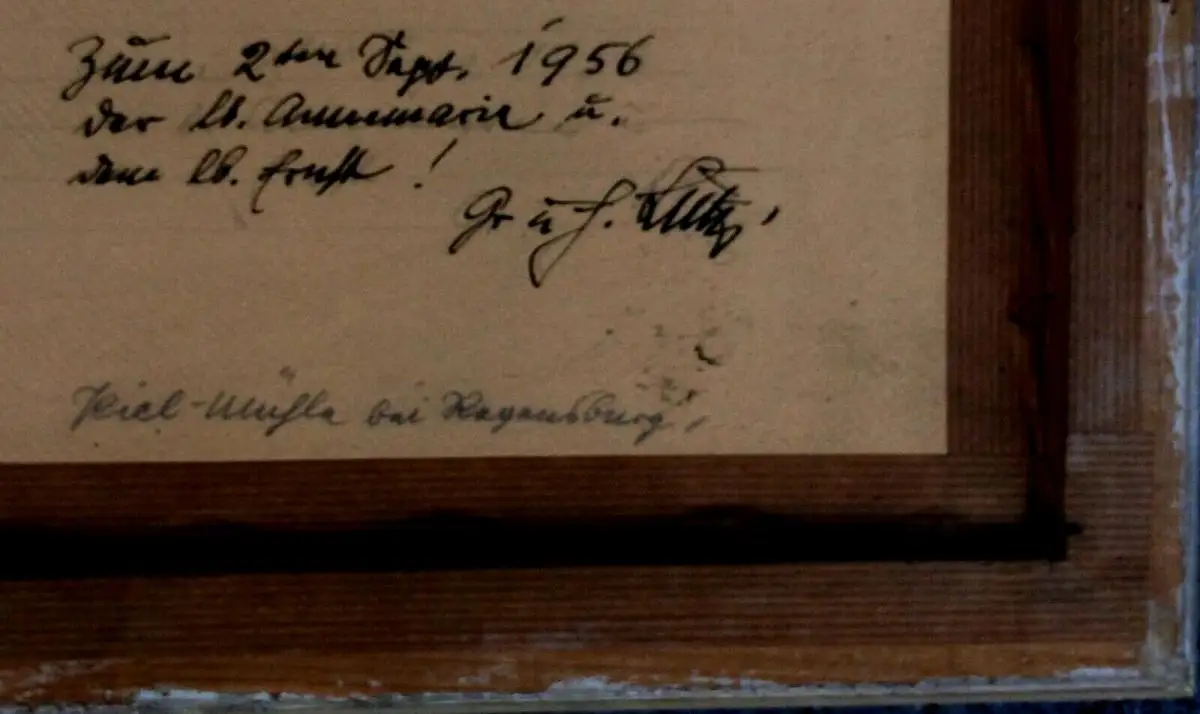 Zum 2ten Sept. 1956
der lb. Annemarie u.
dem lb. Ernst!
Gr u J. Lutz,
Piel-Mühle bei Regensburg,